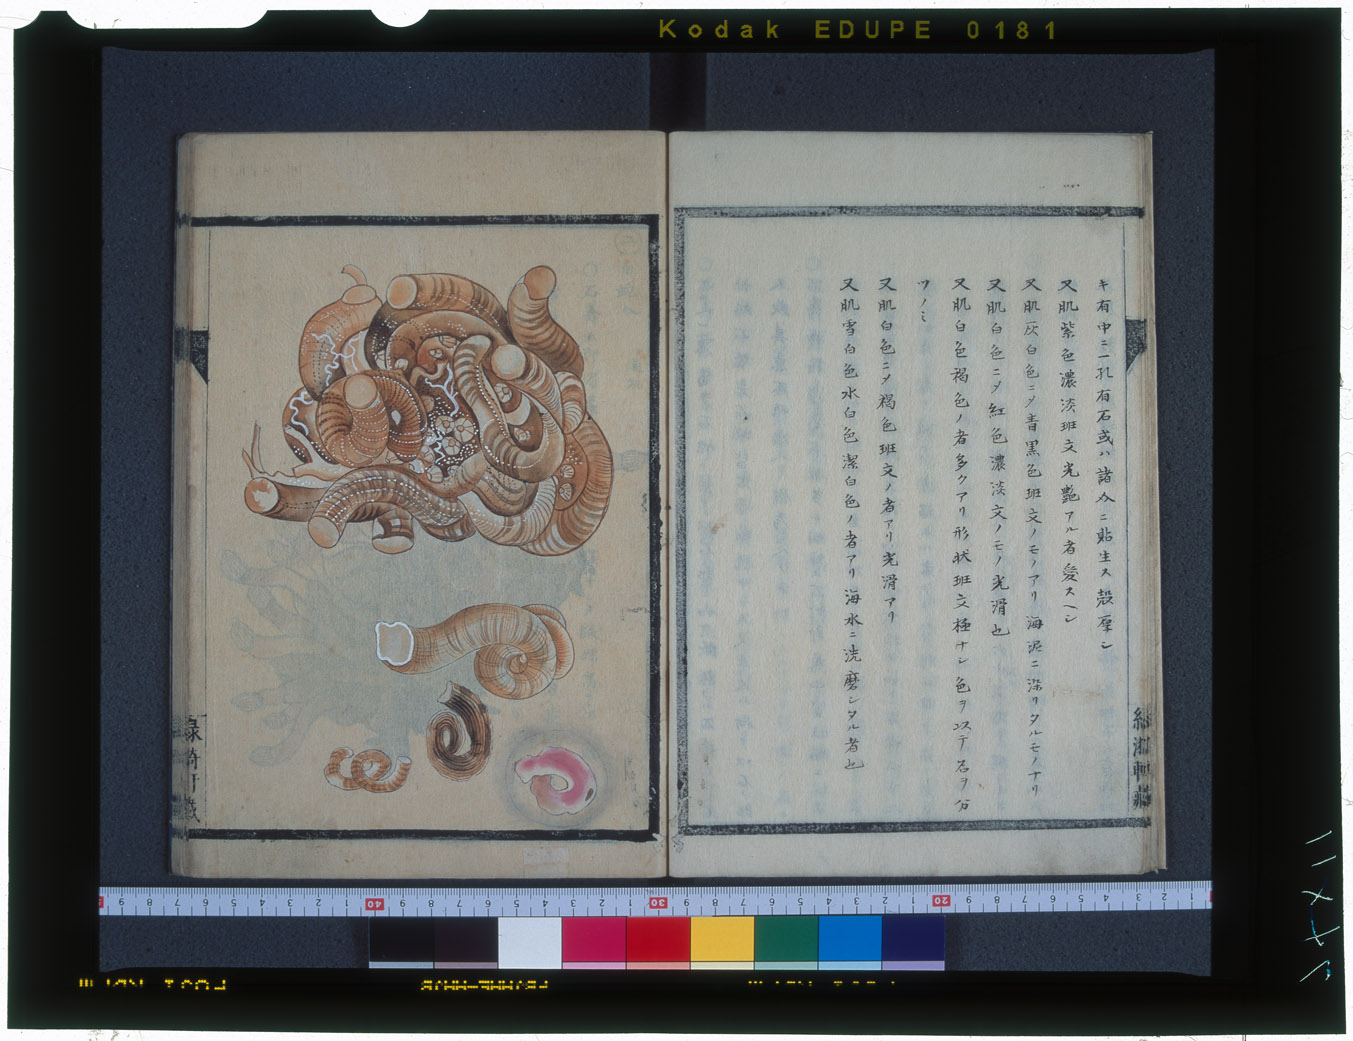 Kodak EDUPE 0181
キ有中ニ一孔有石或ハ諸介ニ貼生ス殻厚シ
又肌紫色濃淡班文光艶アル者愛スヘシ
又肌灰白色ニ〆青黒色班文ノモノアリ海泥ニ染リタルモノナリ
又肌白色ニ〆紅色濃淡文ノモノ光滑也
又肌白色褐色ノ者多クアリ形状班文極ナシ色ヲ以テ名ヲ分
ツノミ
又肌白色ニ〆褐色班文ノ者アリ光滑アリ
又肌雪白色水白色潔白色ノ者アリ海水ニ洗磨シタル者也
9 8 7 6 5 4 3 2 1 40 9 8 7 6 5 4 3 2 1 30 9 8 7 6 5 4 3 2 1 20 9 8 7 6 5 4 3 2 1